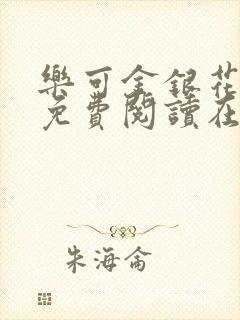 樂可金銀花
免費閱讀在
朱海侖